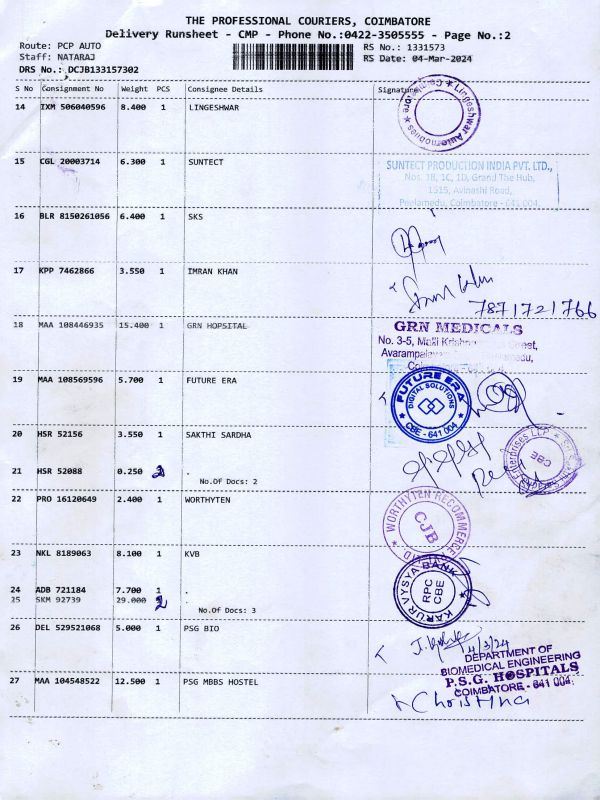 THE PROFESSIONAL COURIERS, COIMBATORE
Delivery Runsheet - CMP - Phone No.:0422-3505555 - Page No.:2
Route: PCP AUTO RS No.: 1331573
Staff: NATARAJ RS Date: 04-Mar-2024
DRS No.: DCJB133157302
S No Consignment No Weight PCS Consignee Details Signature
14 IXM 506040596 8.400 1 LINGESHWAR
Lingeshwar Automobiles
15 CGL 20003714 6.300 1 SUNTECT
SUNTECT PRODUCTION INDIA PVT. LTD.,
Nos. 1B, 1C, 1D, Grand The Hub,
1515, Avinashi Road,
Peelamedu, Coimbatore - 641 004.
16 BLR 8150261056 6.400 1 SKS
17 KPP 7462866 3.550 1 IMRAN KHAN
7871721766
18 MAA 108446935 15.400 1 GRN HOPSITAL
GRN MEDICALS
No. 3-5, Malli Krishna
19 MAA 108569596 5.700 1 FUTURE ERA
FUTURE ERA
DIGITAL SOLUTIONS
CBE - 641 004
20 HSR 52156 3.550 1 SAKTHI SARDHA
Enterprises LLP
CBE
21 HSR 52088 0.250 2 .
No.Of Docs: 2
22 PRO 16120649 2.400 1 WORTHYTEN
WORTHYTEN RECOMMERCE
CJB
23 NKL 8189063 8.100 1 KVB
KARUR VYSYA BANK
RPC
CBE
24 ADB 721184 7.700 1 .
25 SKM 92739 29.000 2
No.Of Docs: 3
26 DEL 529521068 5.000 1 PSG BIO
4/3/24
DEPARTMENT OF
BIOMEDICAL ENGINEERING
P.S.G. HOSPITALS
COIMBATORE - 641 004.
27 MAA 104548522 12.500 1 PSG MBBS HOSTEL
Christina